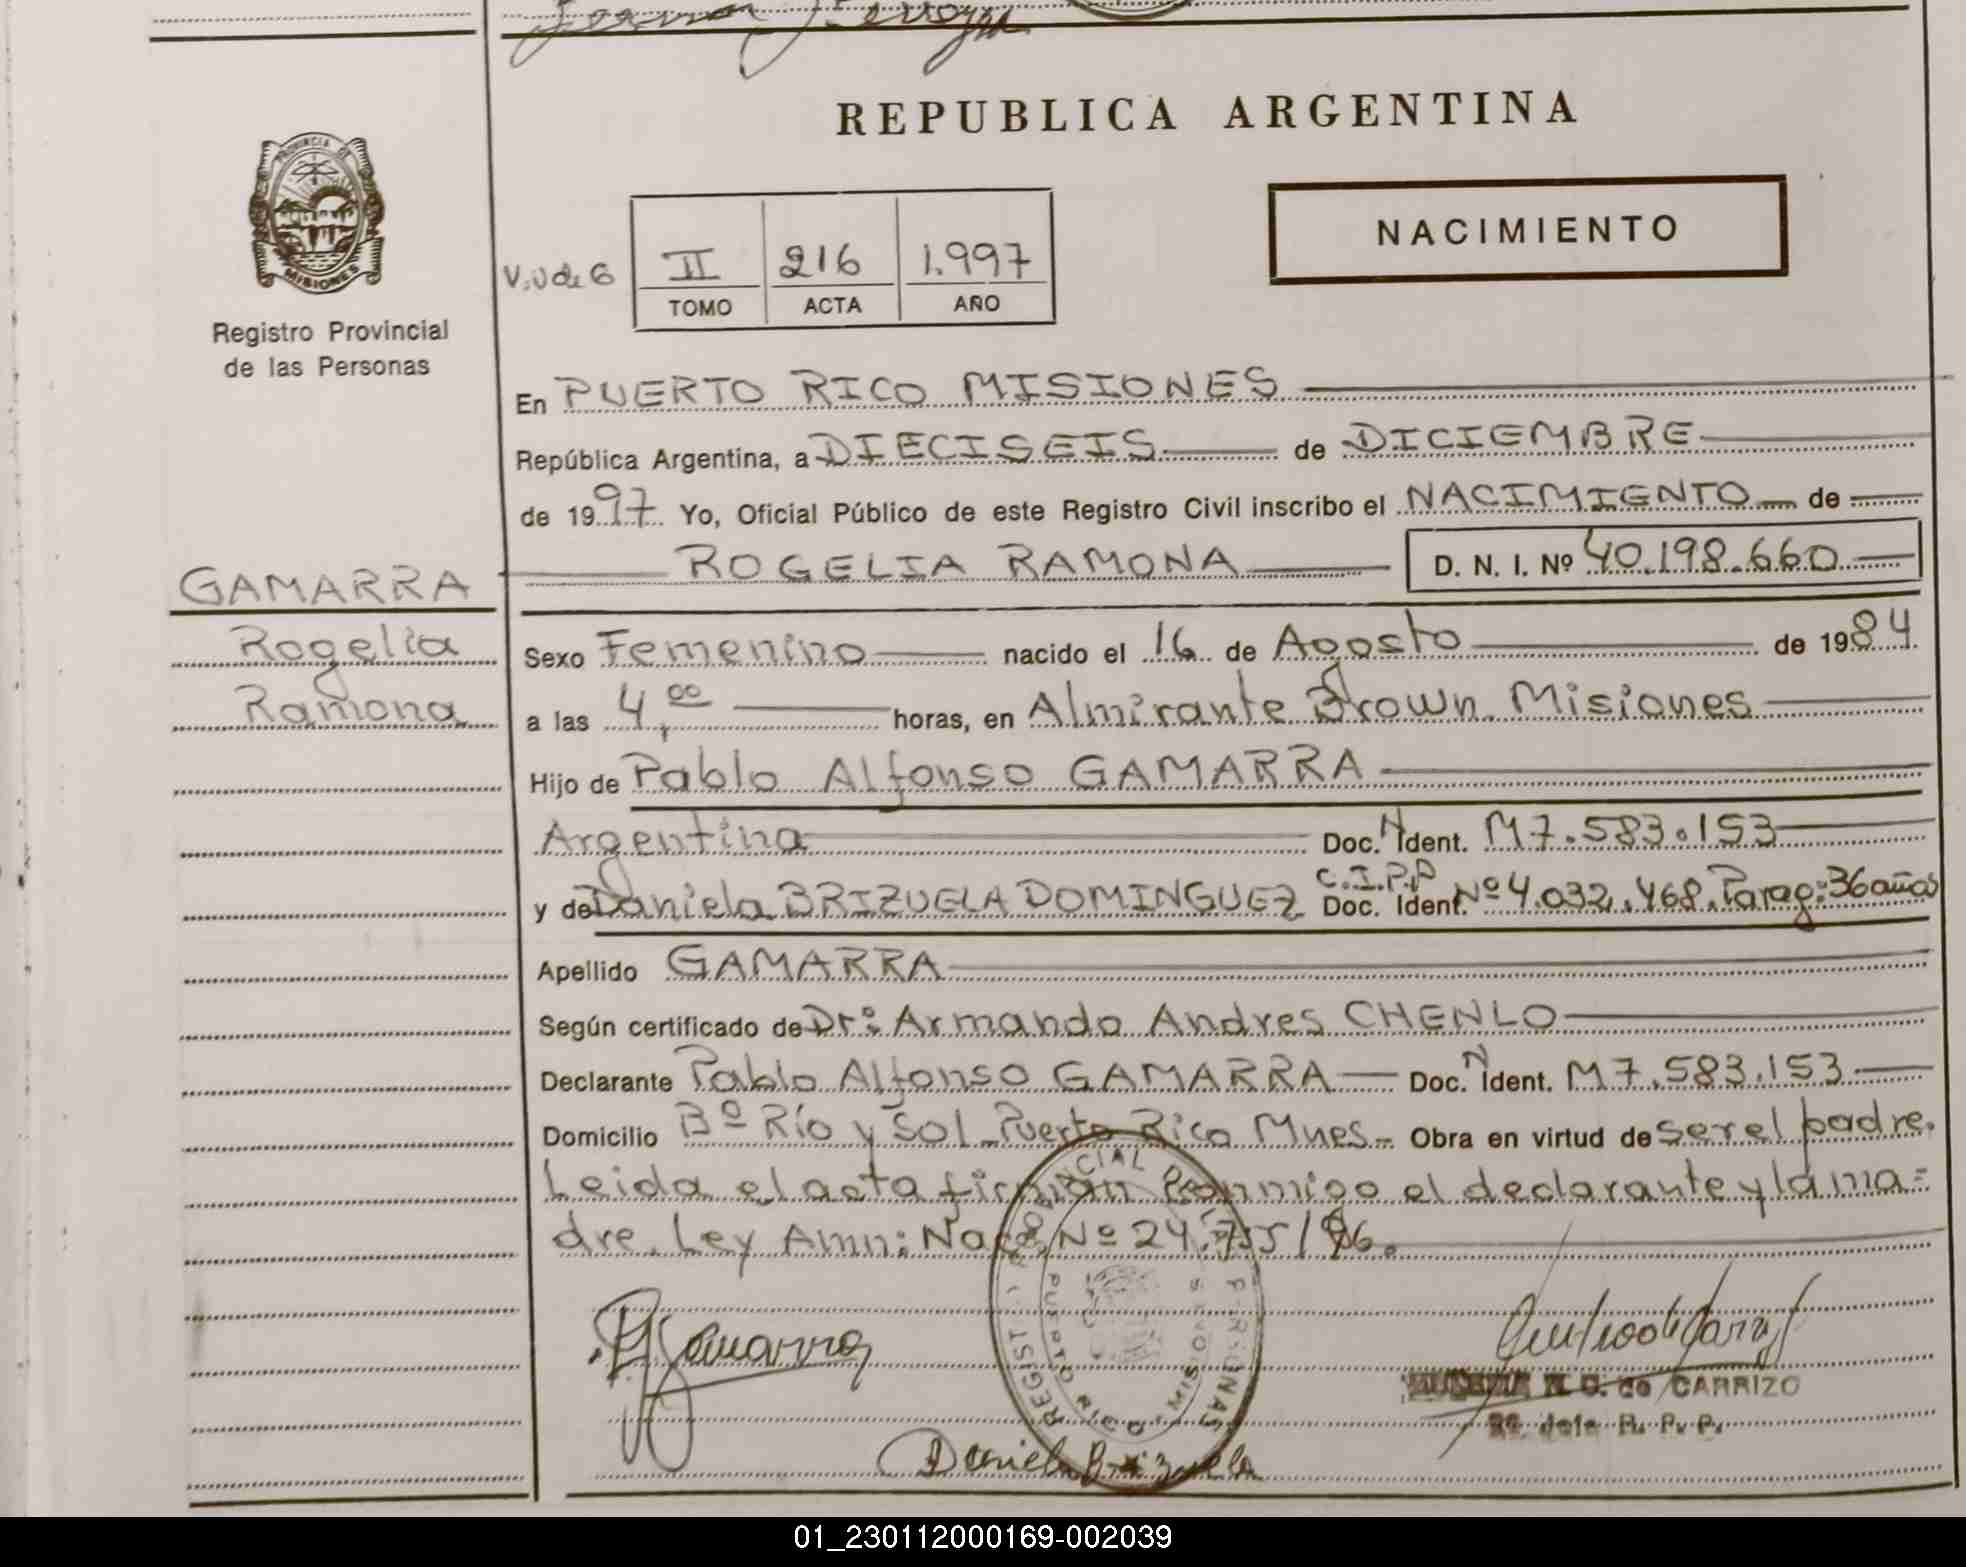 REPUBLICA ARGENTINA
PROVINCIA DE
MISIONES
Registro Provincial
de las Personas
NACIMIENTO
II 216 1.997
TOMO ACTA AÑO
En PUERTO RICO MISIONES
República Argentina, a DIECISEIS de DICIEMBRE
de 1997 Yo, Oficial Público de este Registro Civil inscribo el NACIMIENTO de
GAMARRA
ROGELIA RAMONA D. N. I. Nº 40.198.660
Rogelia
Ramona
Sexo Femenino nacido el 16 de Agosto de 1984
a las 4,00 horas, en Almirante Brown Misiones
Hijo de Pablo Alfonso GAMARRA
Argentina Doc. N Ident. M7.583.153
y de Daniela BRIZUELA DOMINGUEZ C.I.P.P Doc. Ident. Nº 4.032.468. Parag: 36 años
Apellido GAMARRA
Según certificado de Drº Armando Andres CHENLO
Declarante Pablo Alfonso GAMARRA Doc. N Ident. M7.583.153
Domicilio Bº Río y Sol Puerto Rico Mnes. Obra en virtud de ser el padre.
Leida el acta firman conmigo el declarante y la ma=
dre. Ley Amn: Nac. Nº 24.755/96.
Gamarra
Daniela Brizuela
de CARRIZO
R. P. P.
01_230112000169-002039